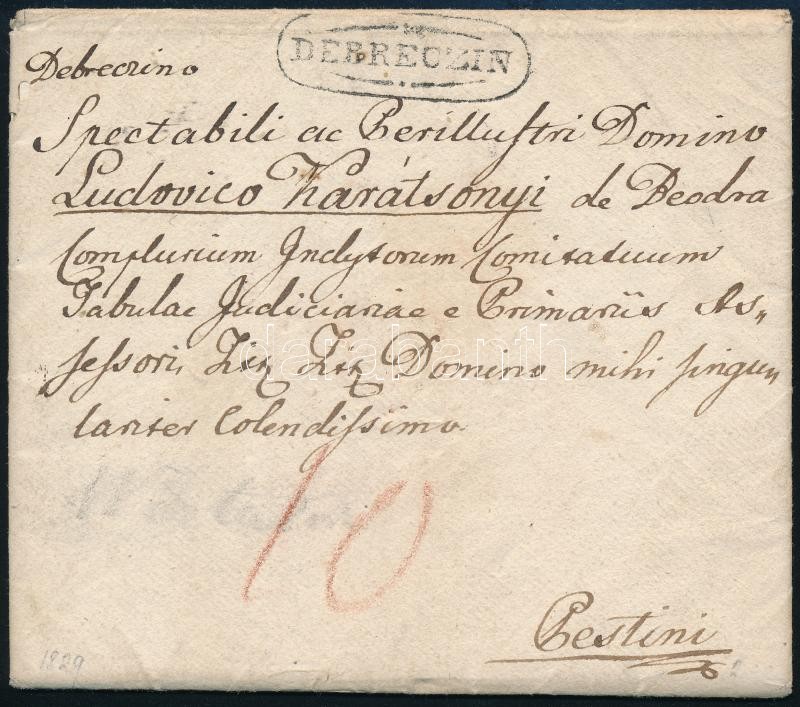 DEBRECZIN
Debreczino
Spectabili ac Perillustri Domino
Ludovico Karátsonyi de Beodra
Complurium Inclytorum Comitatuum
Tabulae Judiciariae e Primariis As„
sessori, Tit Tit Domino mihi singu„
lariter Colendissimo
darabanth
10
Pestini
1829
2